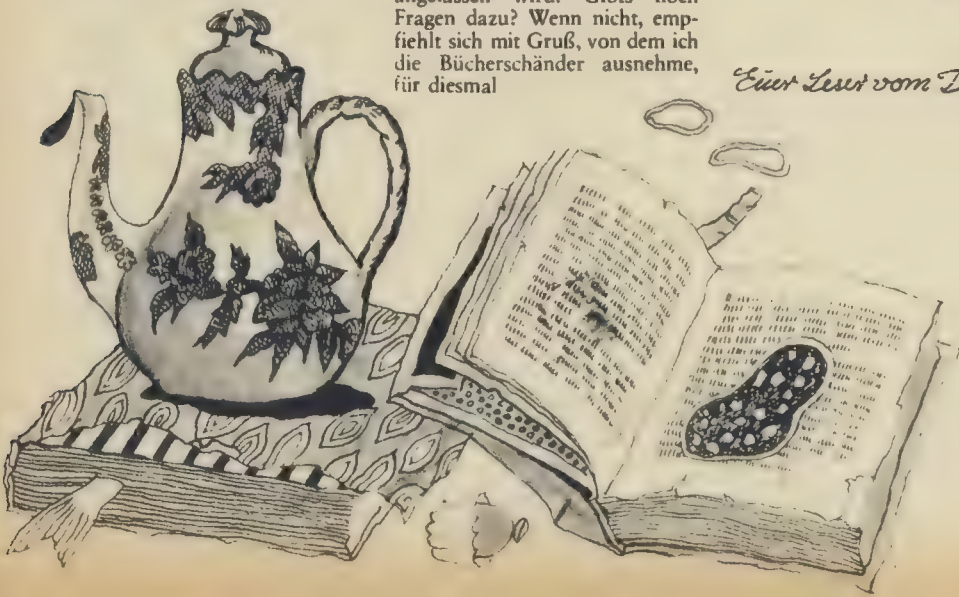 Fragen dazu? Wenn nicht, emp-
fiehlt sich mit Gruß, von dem ich
die Bücherschänder ausnehme,
für diesmal
Euer Leser vom